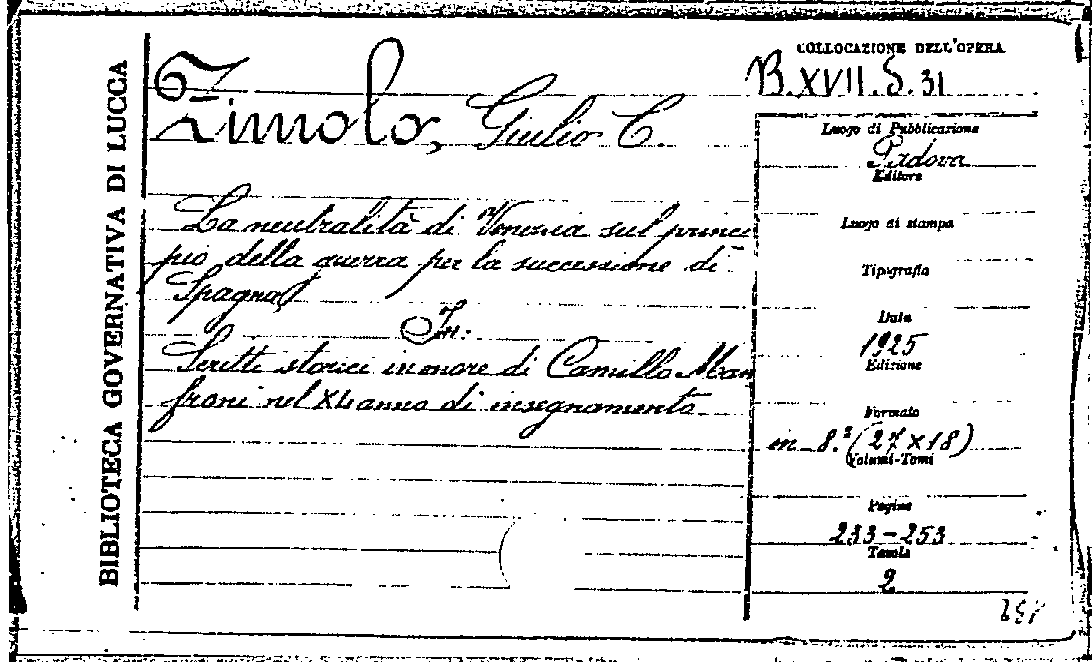 BIBLIOTECA GOVERNATIVA DI LUCCA
Zimolo, Giulio C.
La neutralità di Venezia sul princi
pio della guerra per la successione di
Spagna
In:
Scritti storici in onore di Camillo Man
froni nel XL anno di insegnamento
COLLOCAZIONE DELL'OPERA
B.XVII.S.31
Luogo di Pubblicazione
Padova
Editore
Luogo di stampa
Tipografia
Data
1925
Edizione
Formato
in 8.° (27×18)
Volumi-Tomi
Pagine
233-253
Tavole
2